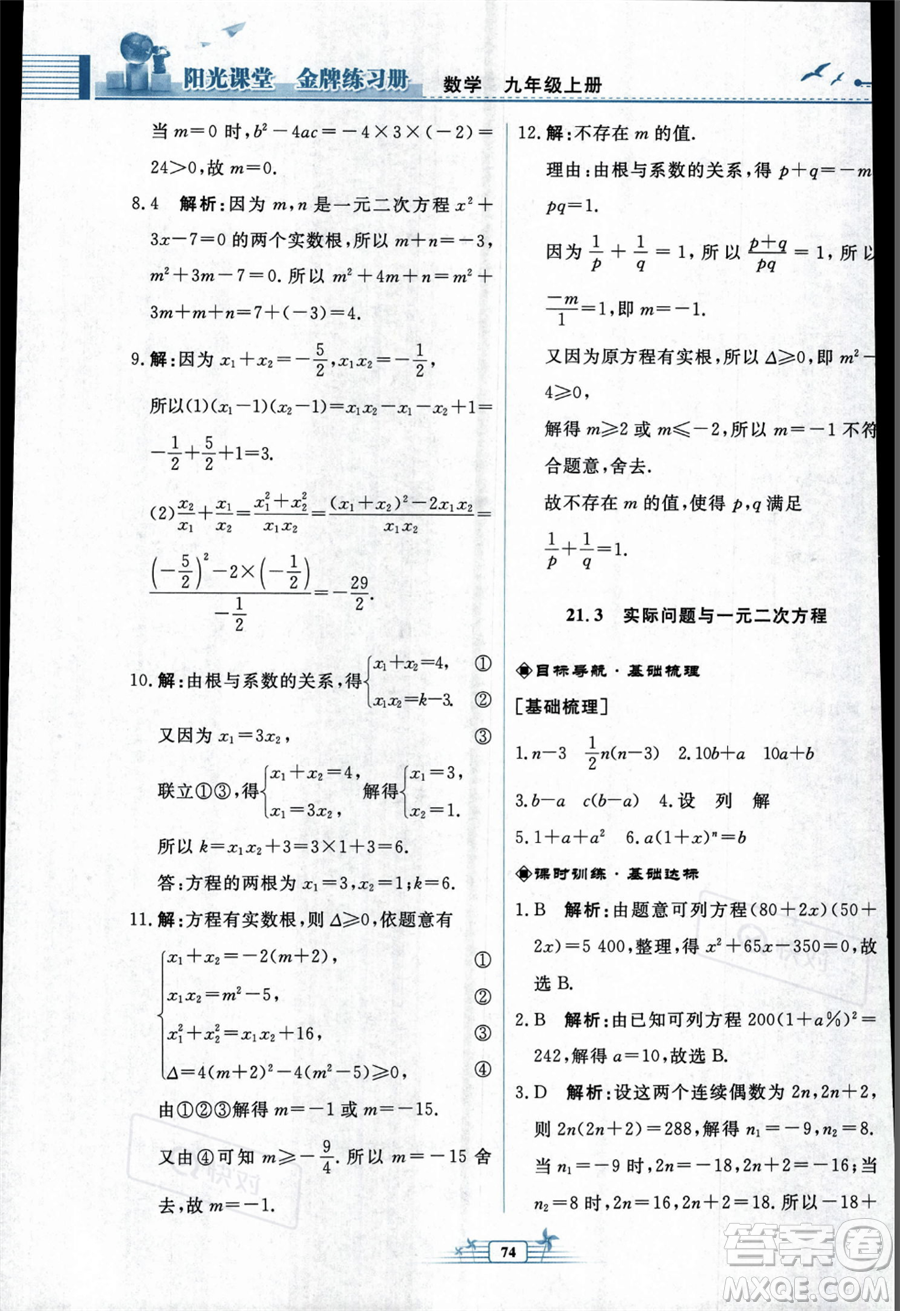 阳光课堂 金牌练习册 数学 九年级上册
当 m=0 时,b²-4ac=-4×3×(-2)=
24>0,故 m=0.
8.4 解析:因为 m,n 是一元二次方程 x²+
3x-7=0 的两个实数根,所以 m+n=-3,
m²+3m-7=0. 所以 m²+4m+n=m²+
3m+m+n=7+(-3)=4.
9.解:因为 x₁+x₂=-5/2,x₁x₂=-1/2,
所以(1)(x₁-1)(x₂-1)=x₁x₂-x₁-x₂+1=
-1/2+5/2+1=3.
(2)x₂/x₁+x₁/x₂=(x₁²+x₂²)/(x₁x₂)=((x₁+x₂)²-2x₁x₂)/(x₁x₂)=
((-5/2)²-2×(-1/2))/(-1/2)=-29/2.
10.解:由根与系数的关系,得{x₁+x₂=4, ①
x₁x₂=k-3. ②
又因为 x₁=3x₂, ③
联立①③,得{x₁+x₂=4, x₁=3x₂. 解得{x₁=3, x₂=1.
所以 k=x₁x₂+3=3×1+3=6.
答:方程的两根为 x₁=3,x₂=1,k=6.
11.解:方程有实数根,则 Δ≥0,依题意有
{x₁+x₂=-2(m+2), ①
x₁x₂=m²-5, ②
x₁²+x₂²=x₁x₂+16, ③
Δ=4(m+2)²-4(m²-5)≥0. ④
由①②③解得 m=-1 或 m=-15.
又由④可知 m≥-9/4. 所以 m=-15 舍
去. 故 m=-1.
12.解:不存在 m 的值.
理由:由根与系数的关系,得 p+q=-m
pq=1.
因为 1/p+1/q=1,所以 (p+q)/pq=1,所以
-m/1=1,即 m=-1.
又因为原方程有实根,所以 Δ≥0,即 m²-
4≥0,
解得 m≥2 或 m≤-2,所以 m=-1 不符
合题意,舍去.
故不存在 m 的值,使得 p,q 满足
1/p+1/q=1.
21.3 实际问题与一元二次方程
目标导航·基础梳理
[基础梳理]
1.n-3 1/2n(n-3) 2.10b+a 10a+b
3.b-a c(b-a) 4.设 列 解
5.1+a+a² 6.a(1+x)ⁿ=b
课时训练·基础达标
1.B 解析:由题意可列方程(80+2x)(50+
2x)=5 400,整理,得 x²+65x-350=0,故
选 B.
2.B 解析:由已知可列方程 200(1+a%)²=
242,解得 a=10,故选 B.
3.D 解析:设这两个连续偶数为 2n,2n+2,
则 2n(2n+2)=288,解得 n₁=-9,n₂=8.
当 n₁=-9 时,2n=-18,2n+2=-16.
当 n₂=8 时,2n=16,2n+2=18. 所以-18+
74
答案圈
MXQE.COM